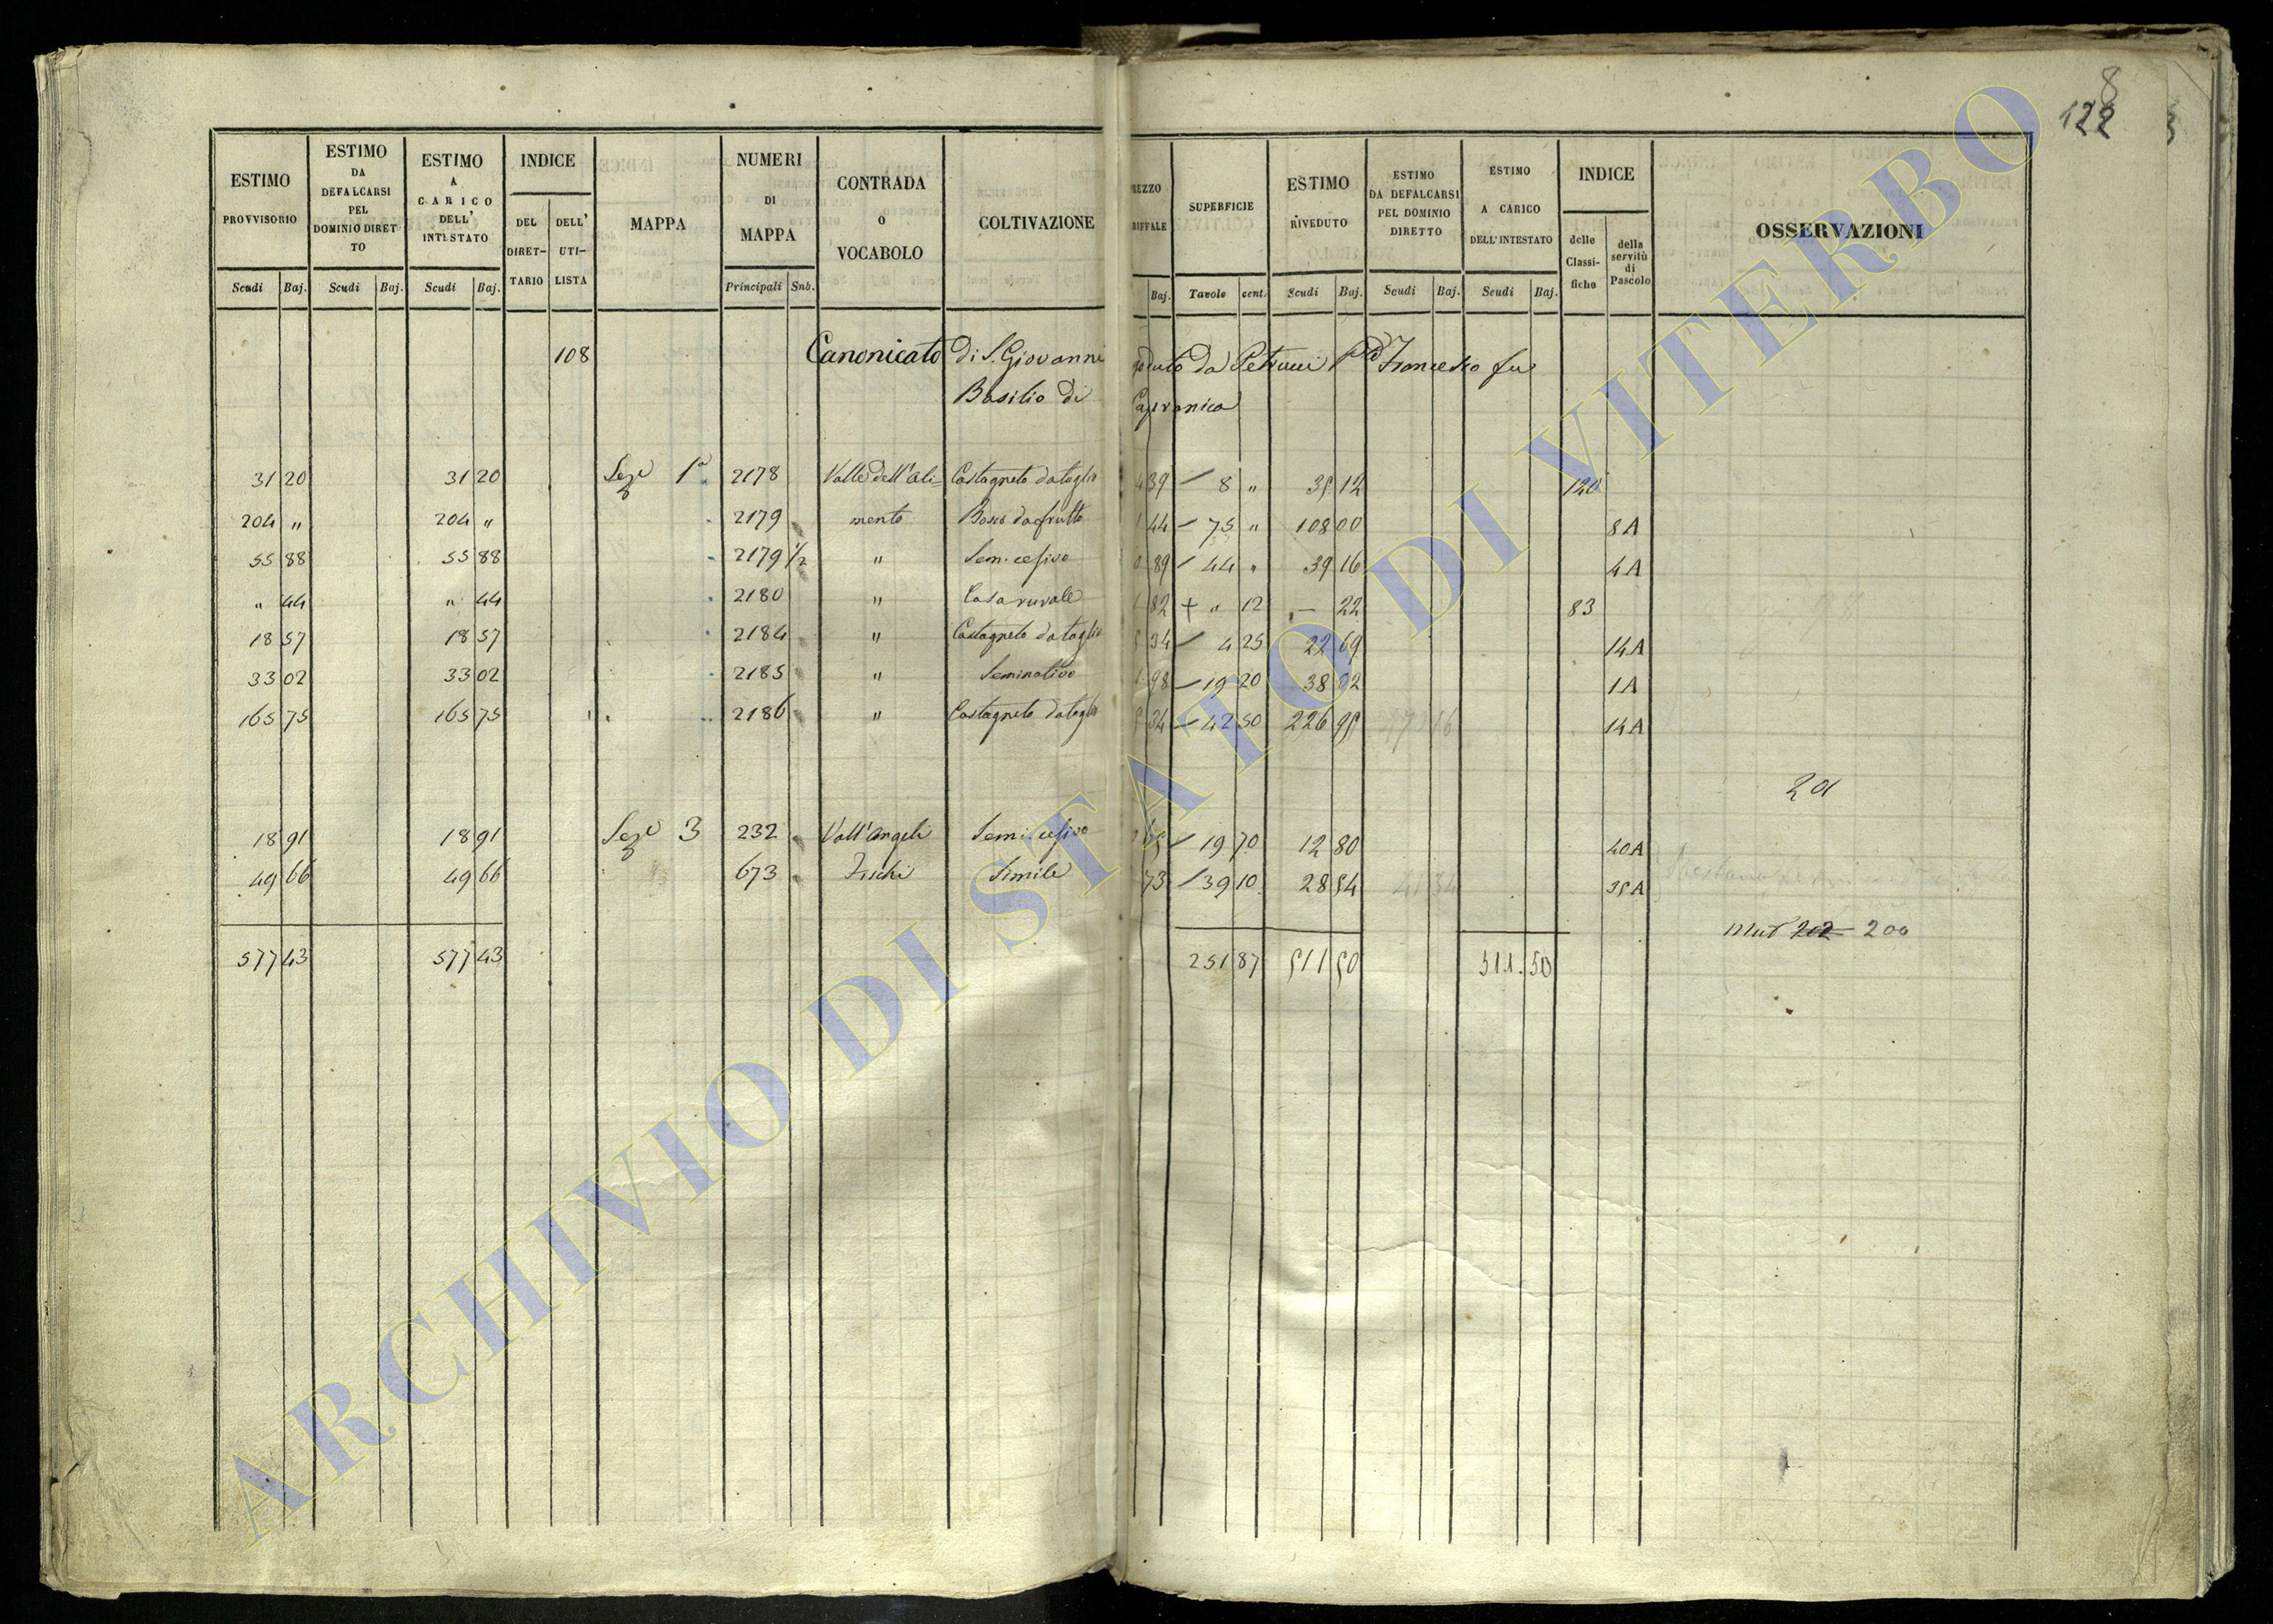 122
8
ESTIMO PROVVISORIO | ESTIMO DA DEFALCARSI PEL DOMINIO DIRETTO | ESTIMO A CARICO DELL' INTESTATO | INDICE | MAPPA | NUMERI DI MAPPA | CONTRADA O VOCABOLO | COLTIVAZIONE | REZZO RIFFALE | SUPERFICIE | ESTIMO RIVEDUTO | ESTIMO DA DEFALCARSI PEL DOMINIO DIRETTO | ESTIMO A CARICO DELL' INTESTATO | INDICE | OSSERVAZIONI
DEL DIRETTARIO | DELL' UTILISTA | delle Classifiche | della servitù di Pascolo
Scudi | Baj. | Scudi | Baj. | Scudi | Baj. | Principali | Sub. | Baj. | Tavole | cent. | Scudi | Baj. | Scudi | Baj. | Scudi | Baj.
108 Canonicato di S. Giovanni goduto da Petrucci Francesco fu
Basilio di Capranica
31 20 31 20 Seze 1a 2178 Valle dell'ali- Castagneto da taglio 4 39 8 " 35 12 120
204 " 204 " 2179 mento Bosco da frutto 1 44 75 " 108 00 8A
55 88 55 88 2179 1/2 " Sem. cesivo 0 89 44 " 39 16 4A
" 44 " 44 2180 " Casa rurale 1 82 + " 12 — 22 83
18 57 18 57 2184 " Castagneto da taglio 5 34 4 25 22 69 14A
33 02 33 02 2185 " Seminativo 1 98 19 20 38 02 1A
165 75 165 75 2186 " Castagneto da taglio 5 34 42 50 226 95 14A
201
18 91 18 91 Seze 3 232 Vall'angeli Semi. cesivo 65 19 70 12 80 40A
49 66 49 66 673 Fischi Simile 73 39 10 28 54 35A
Mut 202 200
577 43 577 43 251 87 511 50 511. 50
ARCHIVIO DI STATO DI VITERBO